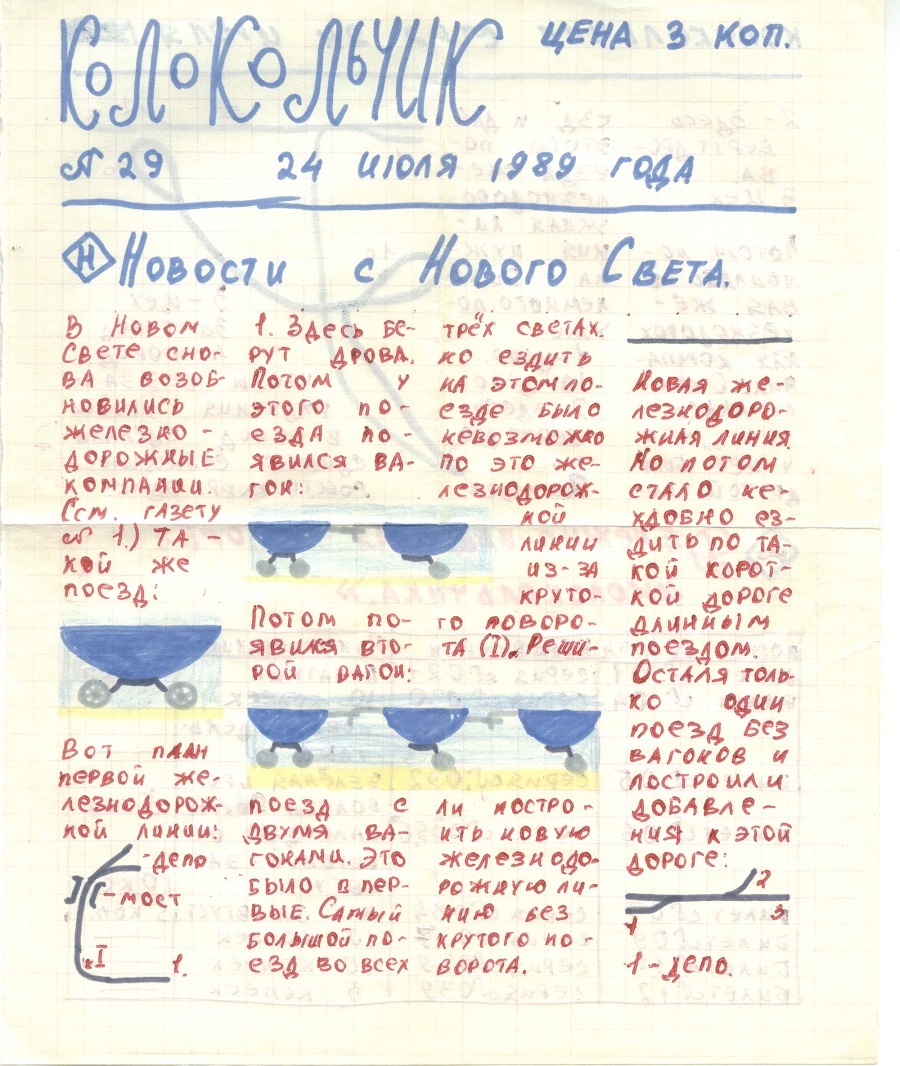 КОЛОКОЛЬЧИК
ЦЕНА 3 КОП.
№ 29 24 ИЮЛЯ 1989 ГОДА
Н НОВОСТИ С НОВОГО СВЕТА.
В НОВОМ
СВЕТЕ СНО-
ВА ВОЗОБ-
НОВИЛИСЬ
ЖЕЛЕЗНО-
ДОРОЖНЫЕ
КОМПАНИИ.
(СМ. ГАЗЕТУ
№ 1.) ТА-
КОЙ ЖЕ
ПОЕЗД:
ВОТ ПЛАН
ПЕРВОЙ ЖЕ-
ЛЕЗНОДОРОЖ-
НОЙ ЛИНИИ:
-ДЕПО
I
-МОСТ
I
1.
1. ЗДЕСЬ БЕ-
РУТ ДРОВА.
ПОТОМ У
ЭТОГО ПО-
ЕЗДА ПО-
ЯВИЛСЯ ВА-
ГОН:
ПОТОМ ПО-
ЯВИЛСЯ ВТО-
РОЙ ВАГОН:
ПОЕЗД С
ДВУМЯ ВА-
ГОНАМИ. ЭТО
БЫЛО ВПЕР-
ВЫЕ. САМЫЙ
БОЛЬШОЙ ПО-
ЕЗД ВО ВСЕХ
ТРЁХ СВЕТАХ.
НО ЕЗДИТЬ
НА ЭТОМ ПО-
ЕЗДЕ БЫЛО
НЕВОЗМОЖНО
ПО ЭТО ЖЕ-
ЛЕЗНОДОРОЖ-
НОЙ
ЛИНИИ
ИЗ-ЗА
КРУТО-
ГО ПОВОРО-
ТА (I). РЕШИ-
ЛИ ПОСТРО-
ИТЬ НОВУЮ
ЖЕЛЕЗНОДО-
РОЖНУЮ ЛИ-
НИЮ БЕЗ
КРУТОГО ПО-
ВОРОТА.
НОВАЯ ЖЕ-
ЛЕЗНОДОРО-
ЖНАЯ ЛИНИЯ.
НО ПОТОМ
СТАЛО НЕ-
УДОБНО ЕЗ-
ДИТЬ ПО ТА-
КОЙ КОРОТ-
КОЙ ДОРОГЕ
ДЛИННЫМ
ПОЕЗДОМ.
ОСТАЛЯ ТОЛЬ-
КО ОДИН
ПОЕЗД БЕЗ
ВАГОНОВ И
ПОСТРОИЛИ
ДОБАВЛЕ-
НИЯ К ЭТОЙ
ДОРОГЕ:
2
1 3
1-ДЕПО.